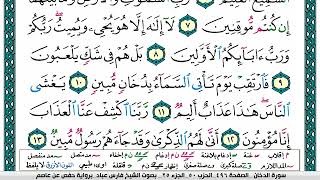 إِن كُنتُم مُّوقِنِينَ ٧ لَآ إِلَٰهَ إِلَّا هُوَ يُحْىِۦ وَيُمِيتُ رَبُّكُمْ
وَرَبُّ ءَابَآئِكُمُ ٱلْأَوَّلِينَ ٨ بَلْ هُمْ فِى شَكٍّ يَلْعَبُونَ
٩ فَٱرْتَقِبْ يَوْمَ تَأْتِى ٱلسَّمَآءُ بِدُخَانٍ مُّبِينٍ ١٠ يَغْشَى
ٱلنَّاسَ هَٰذَا عَذَابٌ أَلِيمٌ ١١ رَّبَّنَا ٱكْشِفْ عَنَّا ٱلْعَذَابَ
إِنَّا مُؤْمِنُونَ ١٢ أَنَّىٰ لَهُمُ ٱلذِّكْرَىٰ وَقَدْ جَآءَهُمْ رَسُولٌ مُّبِينٌ ١٣
سورة الدخان - الصفحة ٤٩٦ - الحزب ٥٠ - الجزء ٢٥ - بصوت الشيخ فارس عباد برواية حفص عن عاصم